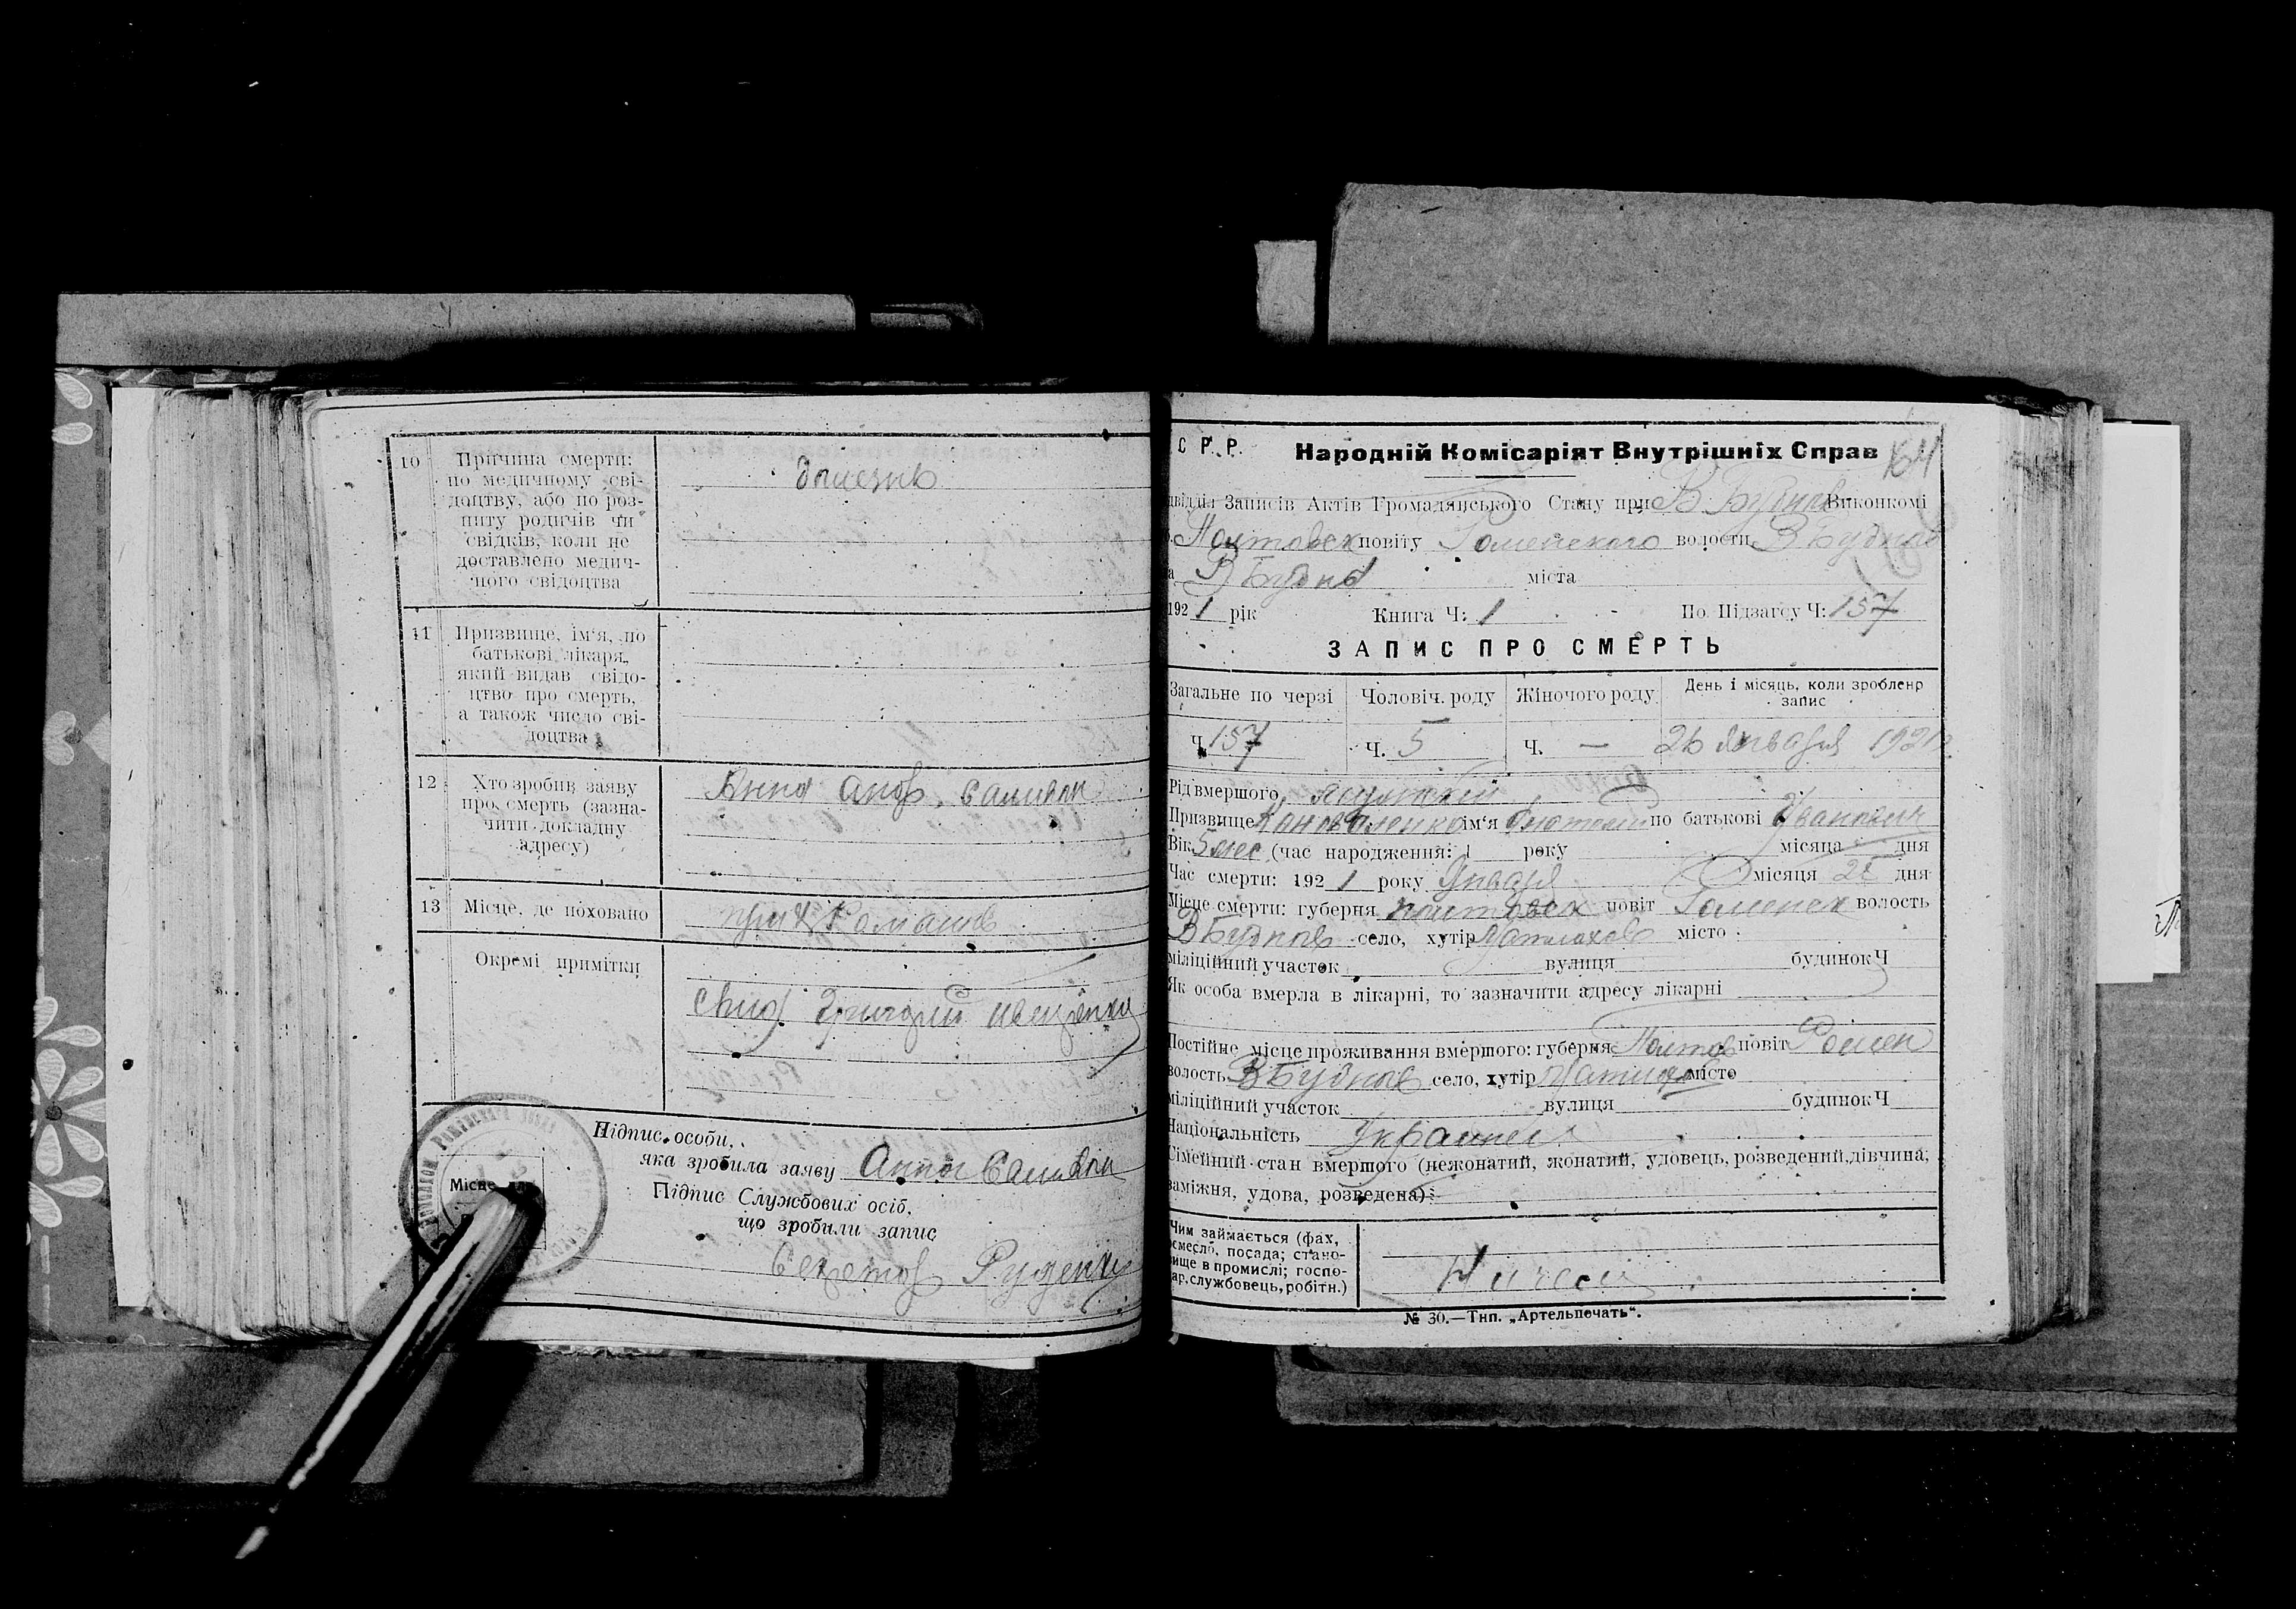 10 Причина смерти:
по медичному сві-
доцтву, або по роз-
питу родичів чи
свідків, коли не
доставлено медич-
ного свідоцтва
11 Призвище, ім'я, по
батькові лікаря,
який видав свідо-
цтво про смерть,
а також число сві-
доцтва
12 Хто зробив заяву
про смерть (зазна-
чити докладну
адресу)
Анна
13 Місце, де поховано
Окремі примітки
Григорий
Підпис особи,
яка зробила заяву Анна
Підпис Службових осіб,
що зробили запис
Секретар Руденку
Місце для
С. Р. Р. Народній Комісаріят Внутрішніх Справ 164
Записів Актів Громадянського Стану при В Будков Виконкомі
Полтавск повіту Роменского волости В Будков
В Будки міста
1921 рік Книга Ч: 1 По Підзагсу Ч: 157
ЗАПИС ПРО СМЕРТЬ
Загальне по черзі Чоловіч. роду Жіночого роду День і місяць, коли зроблено
запис
Ч. 157 Ч. 5 Ч. — 26 января 1921
Рід вмершого мужской
Призвище Коноваленко ім'я по батькові Иванович
Вік 5 мес (час народження: 1 року місяца дня
Час смерти: 1921 року Января місяця дня
Місце смерти: губерня Полтавск повіт Роменск волость
В Будков село, хутір місто
міліційний участок вулиця будинок Ч
Як особа вмерла в лікарні, то зазначити адресу лікарні
Постійне місце проживання вмершого: губерня Полтав повіт Ромен
волость В Будков село, хутір місто
міліційний участок вулиця будинок Ч
Національність Украинец
Сімейний стан вмершого (нежонатий, жонатий, удовець, розведений, дівчина,
заміжня, удова, розведена)
Чим займається (фах,
ремесло, посада; стано-
вище в промислі; госпо-
дар, службовець, робітн.)
№ 30.—Тип. „Артельпечать“.